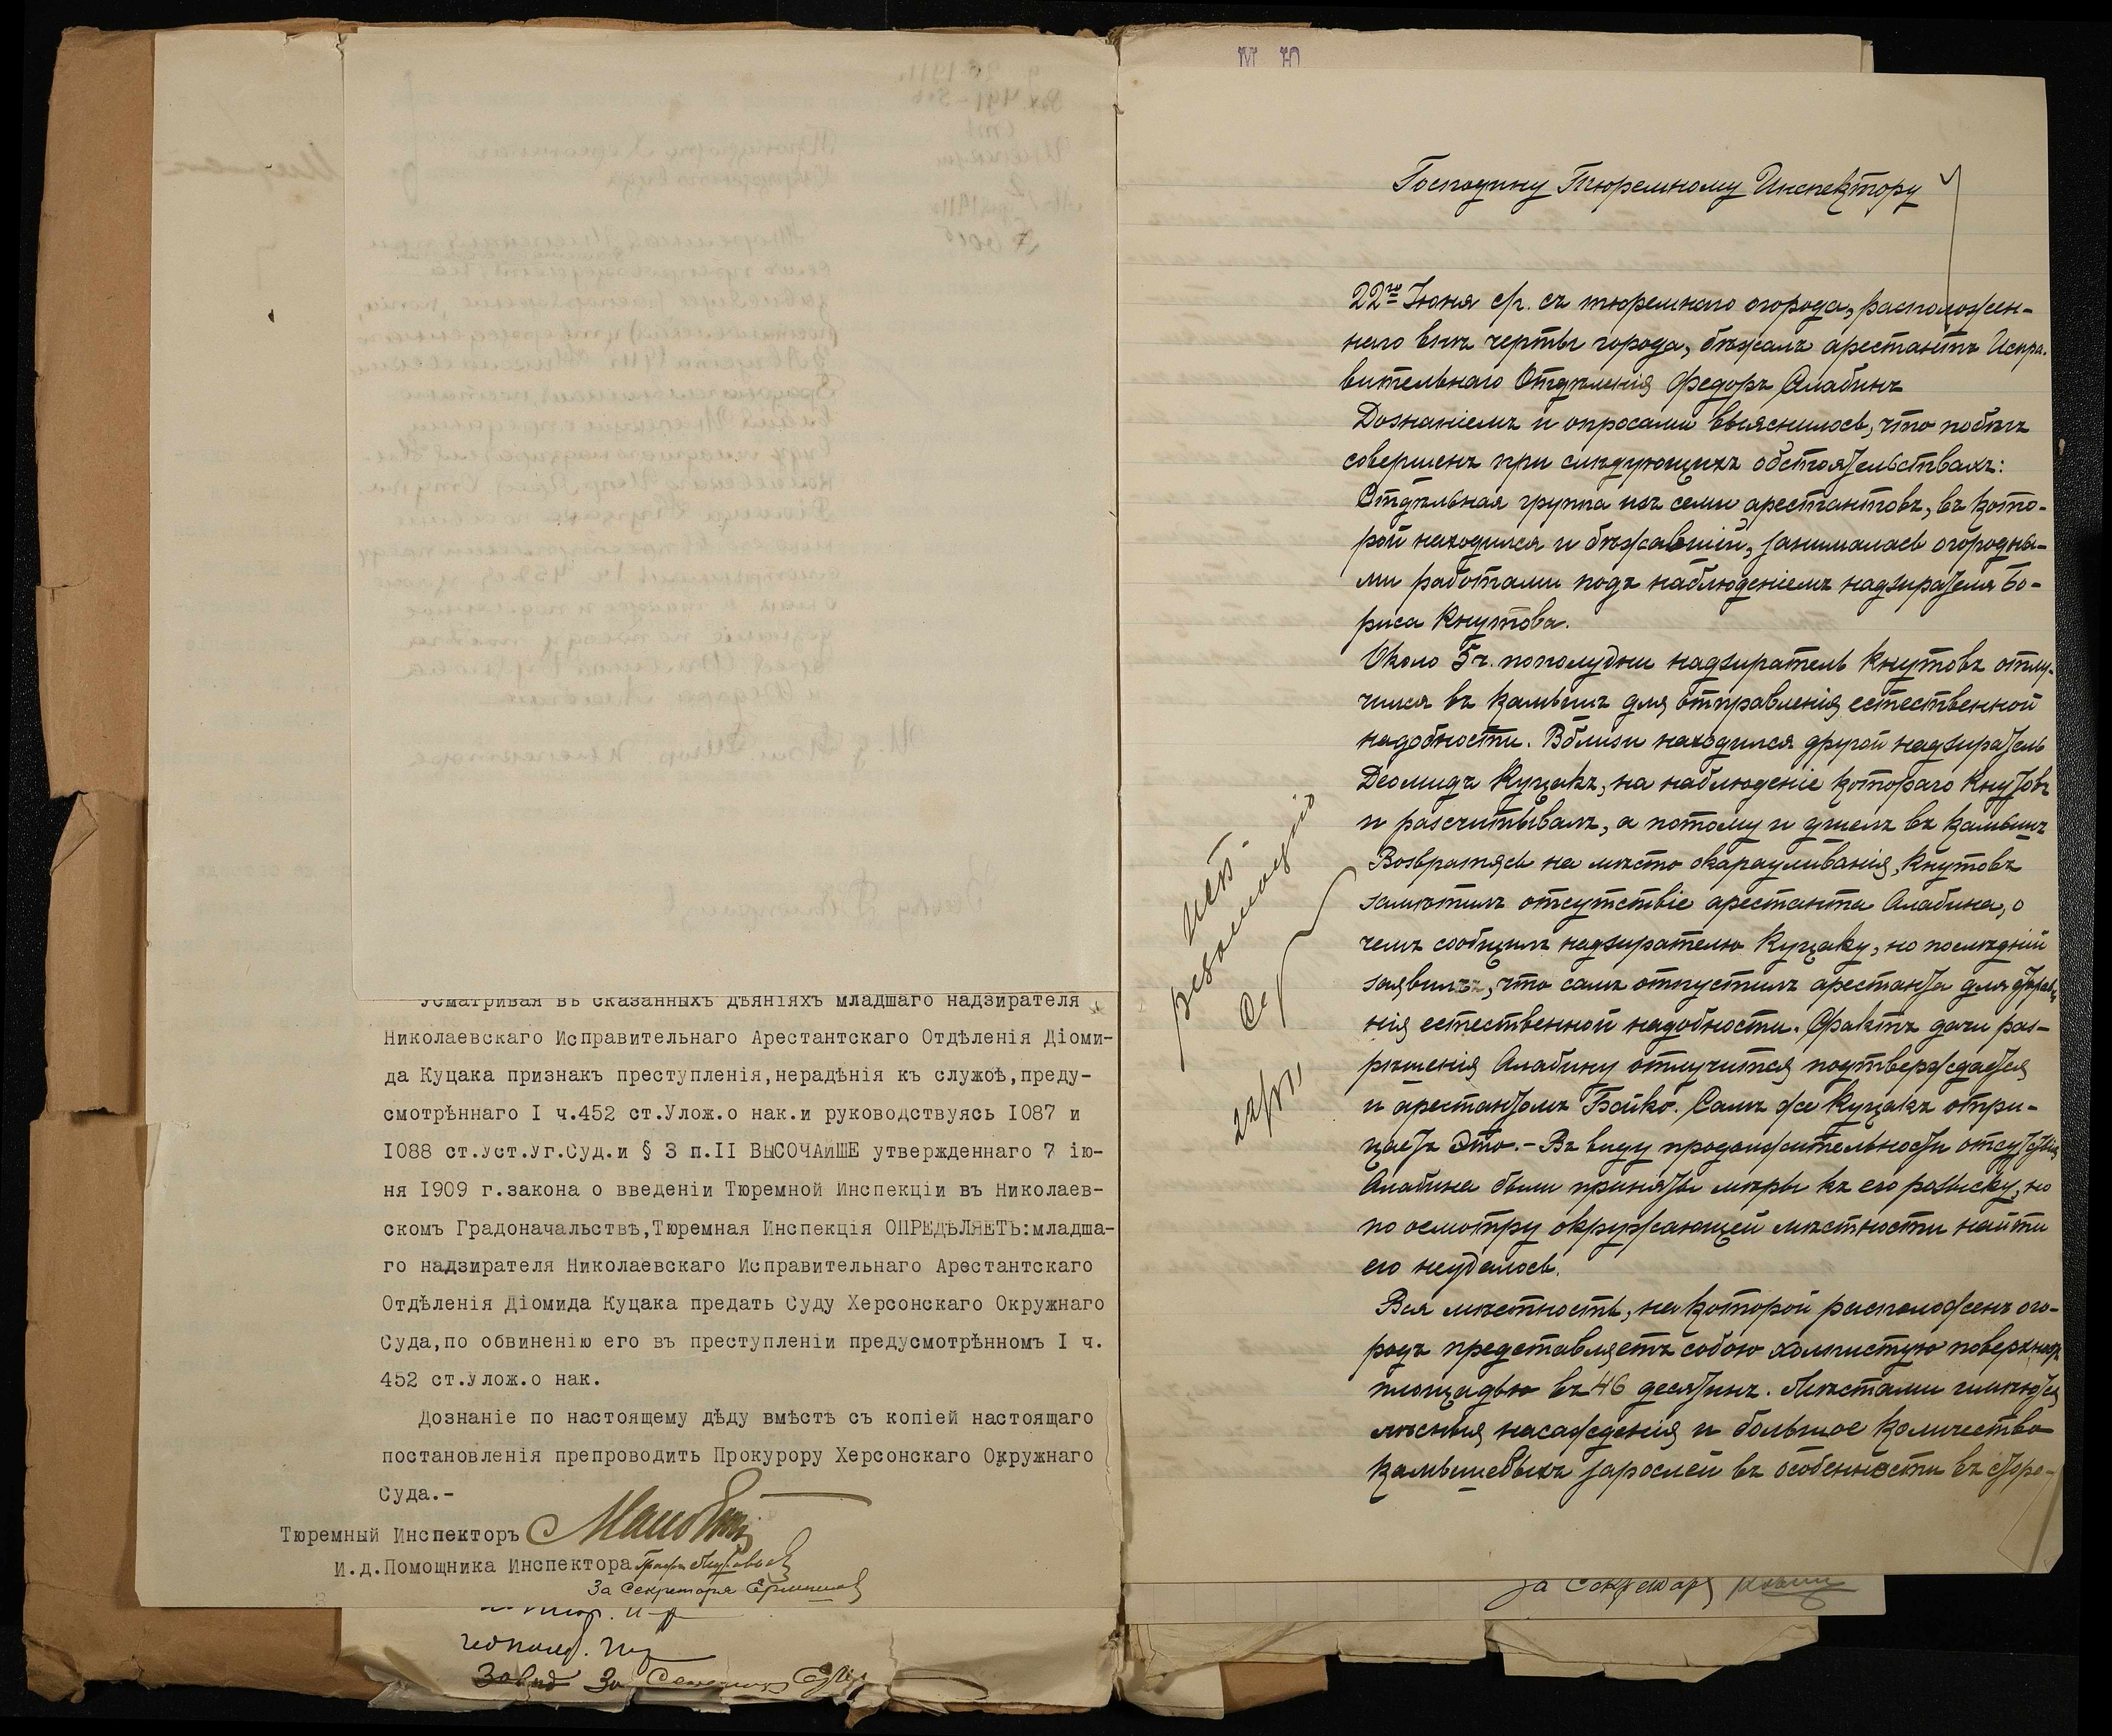 Усматривая въ сказанныхъ дѣянiяхъ младшаго надзирателя
Николаевскаго Исправительнаго Арестантскаго Отдѣленiя Дiоми-
да Куцака признакъ преступленiя,нерадѣнiя къ службѣ,преду-
смотрѣннаго I ч.452 ст.Улож.о нак.и руководствуясь I087 и
I088 ст.Уст.Уг.Суд.и § 3 п.II ВЫСОЧАЙШЕ утвержденнаго 7 iю-
ня I909 г.закона о введенiи Тюремной Инспекцiи въ Николаев-
скомъ Градоначальствѣ,Тюремная Инспекцiя ОПРЕДѢЛЯЕТЪ:младша-
го надзирателя Николаевскаго Исправительнаго Арестантскаго
Отдѣленiя Дiомида Куцака предать Суду Херсонскаго Окружнаго
Суда,по обвиненiю его въ преступленiи предусмотрѣнномъ I ч.
452 ст.Улож.о нак.
Дознанiе по настоящему дѣду вмѣстѣ съ копiей настоящаго
постановленiя препроводить Прокурору Херсонскаго Окружнаго
Суда.-
Тюремный Инспекторъ
И.д.Помощника Инспектора
За Секретаря
За
М Ю
Господину Тюремному Инспектору
22го Iюня с/г. съ тюремнаго огорода, расположен-
наго внѣ черты города, бѣжалъ арестантъ Испра-
вительнаго Отдѣленiя Федоръ Алабинъ
Дознанiемъ и опросами выяснилось, что побѣгъ
совершенъ при слѣдующихъ обстоятельствахъ:
Отдѣльная группа изъ семи арестантовъ, въ кото-
рой находился и бѣжавшiй, занималась огородны-
ми работами подъ наблюденiемъ надзирателя Бо-
риса Кнутова.
Около 5 ч. пополудни надзиратель Кнутовъ отлу-
чился въ камышъ для отправленiя естественной
надобности. Вблизи находился другой надзиратель
Деомидъ Куцакъ, на наблюденiе котораго Кнутовъ
и расчитывалъ, а потому и ушелъ въ камышъ
Возвратясь на мѣсто окарауливанiя, Кнутовъ
замѣтилъ отсутствiе арестанта Алабина, о
чемъ сообщилъ надзирателю Куцаку, но послѣднiй
заявилъ, что самъ отпустилъ арестанта для отправле
нiя естественной надобности. Фактъ дачи раз-
рѣшенiя Алабину отлучится подтверждается
и арестантомъ Бойко. Самъ же Куцакъ отри-
цаетъ Это. - Въ виду продолжительности отсутствiя
Алабина были приняты мѣры къ его розыску, но
по осмотру окружающей мѣстности найти
его неудалось.
Вся мѣстность, на которой расположенъ ого-
родъ представляетъ собою холмистую поверхность
площадью въ 46 десятинъ. Мѣстами имѣются
лѣсныя насажденiя и большое количество
камышевыхъ зарослей въ особенности въ сторо-
За Секретаря